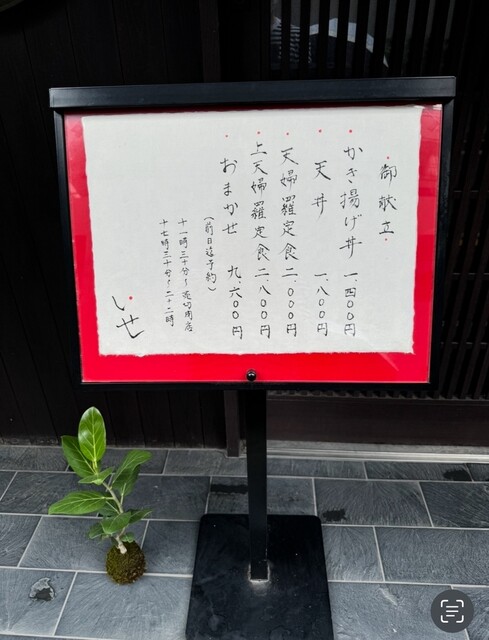 御献立
かき揚げ丼 一、四〇〇円
天丼 一、八〇〇円
天婦羅定食 二、〇〇〇円
上天婦羅定食 二、八〇〇円
おまかせ 九、六〇〇円
(前日迄予約)
十一時三十分〜売切閉店
十七時三十分〜二十二時
いせ